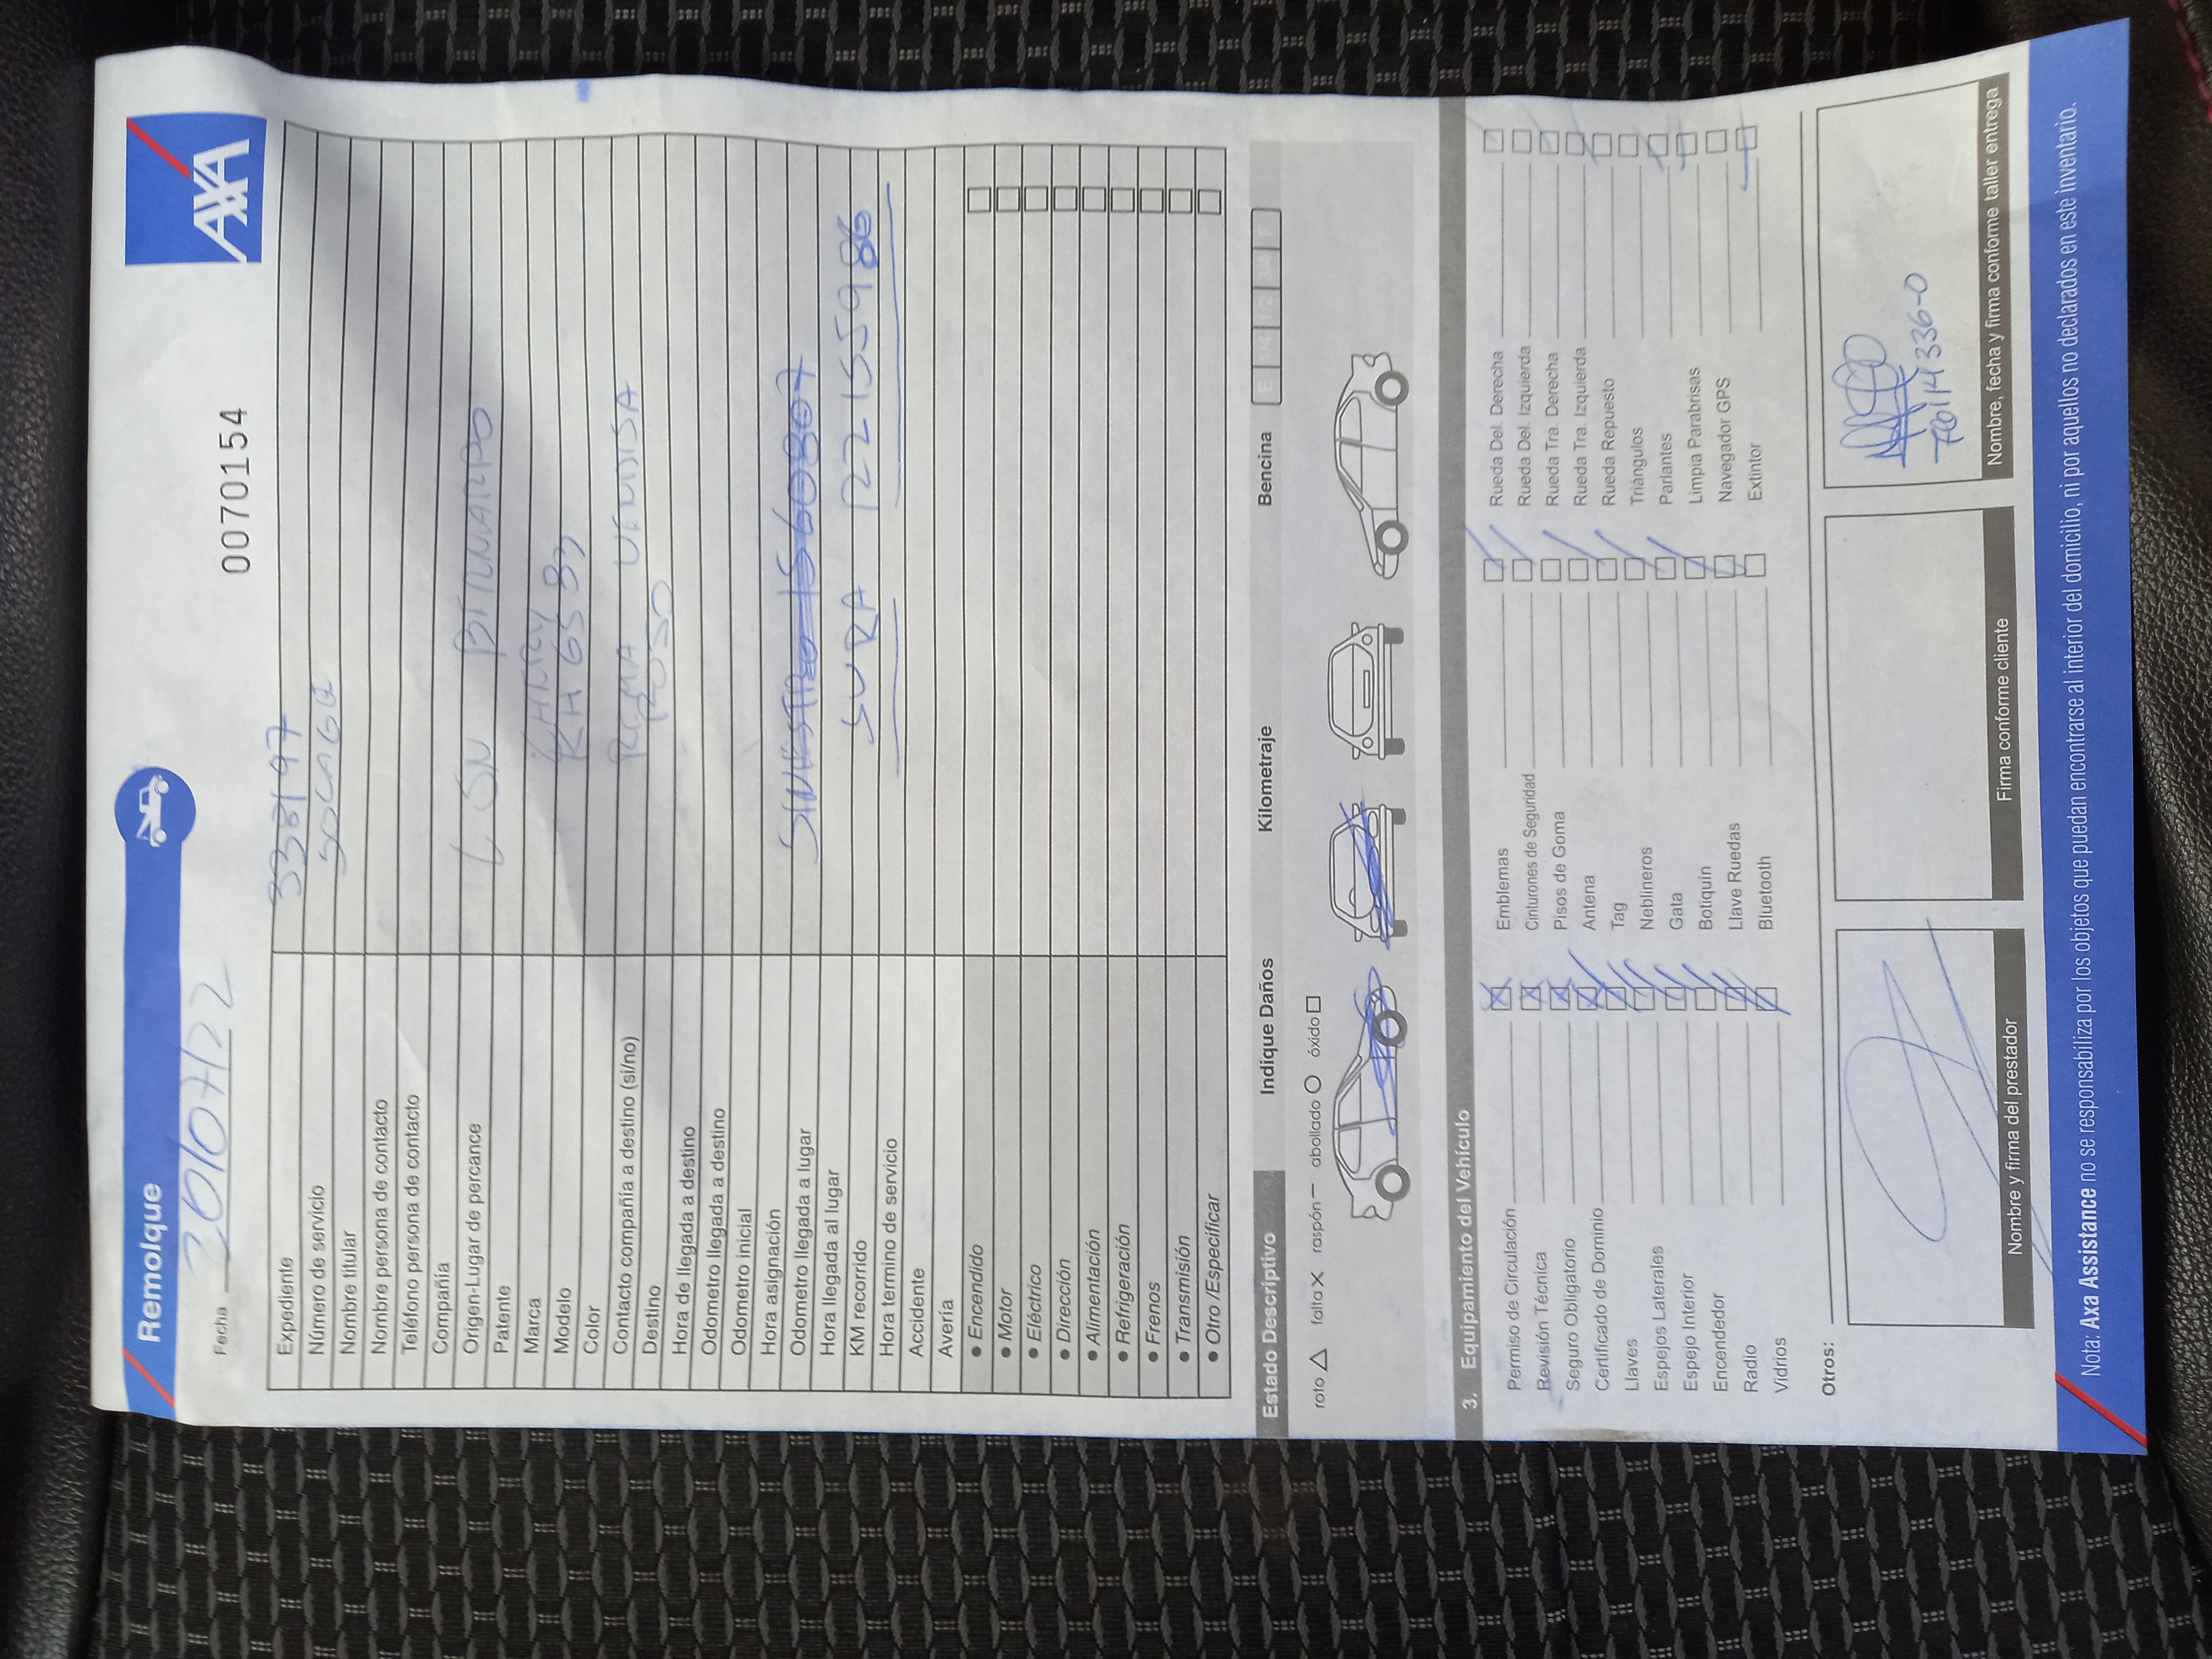 Remolque
AXA
Fecha 20/07/22
0070154
Expediente 338197
Número de servicio
Nombre titular
Nombre persona de contacto
Teléfono persona de contacto
Compañía
Origen-Lugar de percance
Patente
Marca
Modelo
Color
Contacto compañía a destino (si/no)
Destino
Hora de llegada a destino
Odometro llegada a destino
Odometro inicial
Hora asignación
Odometro llegada a lugar
Hora llegada al lugar
KM recorrido SURA 122155986
Hora termino de servicio
Accidente
Avería
• Encendido
• Motor
• Eléctrico
• Dirección
• Alimentación
• Refrigeración
• Frenos
• Transmisión
• Otro /Especificar
Estado Descriptivo Indique Daños Kilometraje Bencina E 1/4 1/2 3/4 F
roto falta raspón abollado óxido
3. Equipamiento del Vehículo
Permiso de Circulación Emblemas Rueda Del. Derecha
Revisión Técnica Cinturones de Seguridad Rueda Del. Izquierda
Seguro Obligatorio Pisos de Goma Rueda Tra. Derecha
Certificado de Dominio Antena Rueda Tra. Izquierda
Llaves Tag Rueda Repuesto
Espejos Laterales Neblineros Triángulos
Espejo Interior Gata Parlantes
Encendedor Botiquin Limpia Parabrisas
Radio Llave Ruedas Navegador GPS
Vidrios Bluetooth Extintor
Otros:
76114336-0
Nombre y firma del prestador Firma conforme cliente Nombre, fecha y firma conforme taller entrega
Nota: Axa Assistance no se responsabiliza por los objetos que puedan encontrarse al interior del domicilio, ni por aquellos no declarados en este inventario.